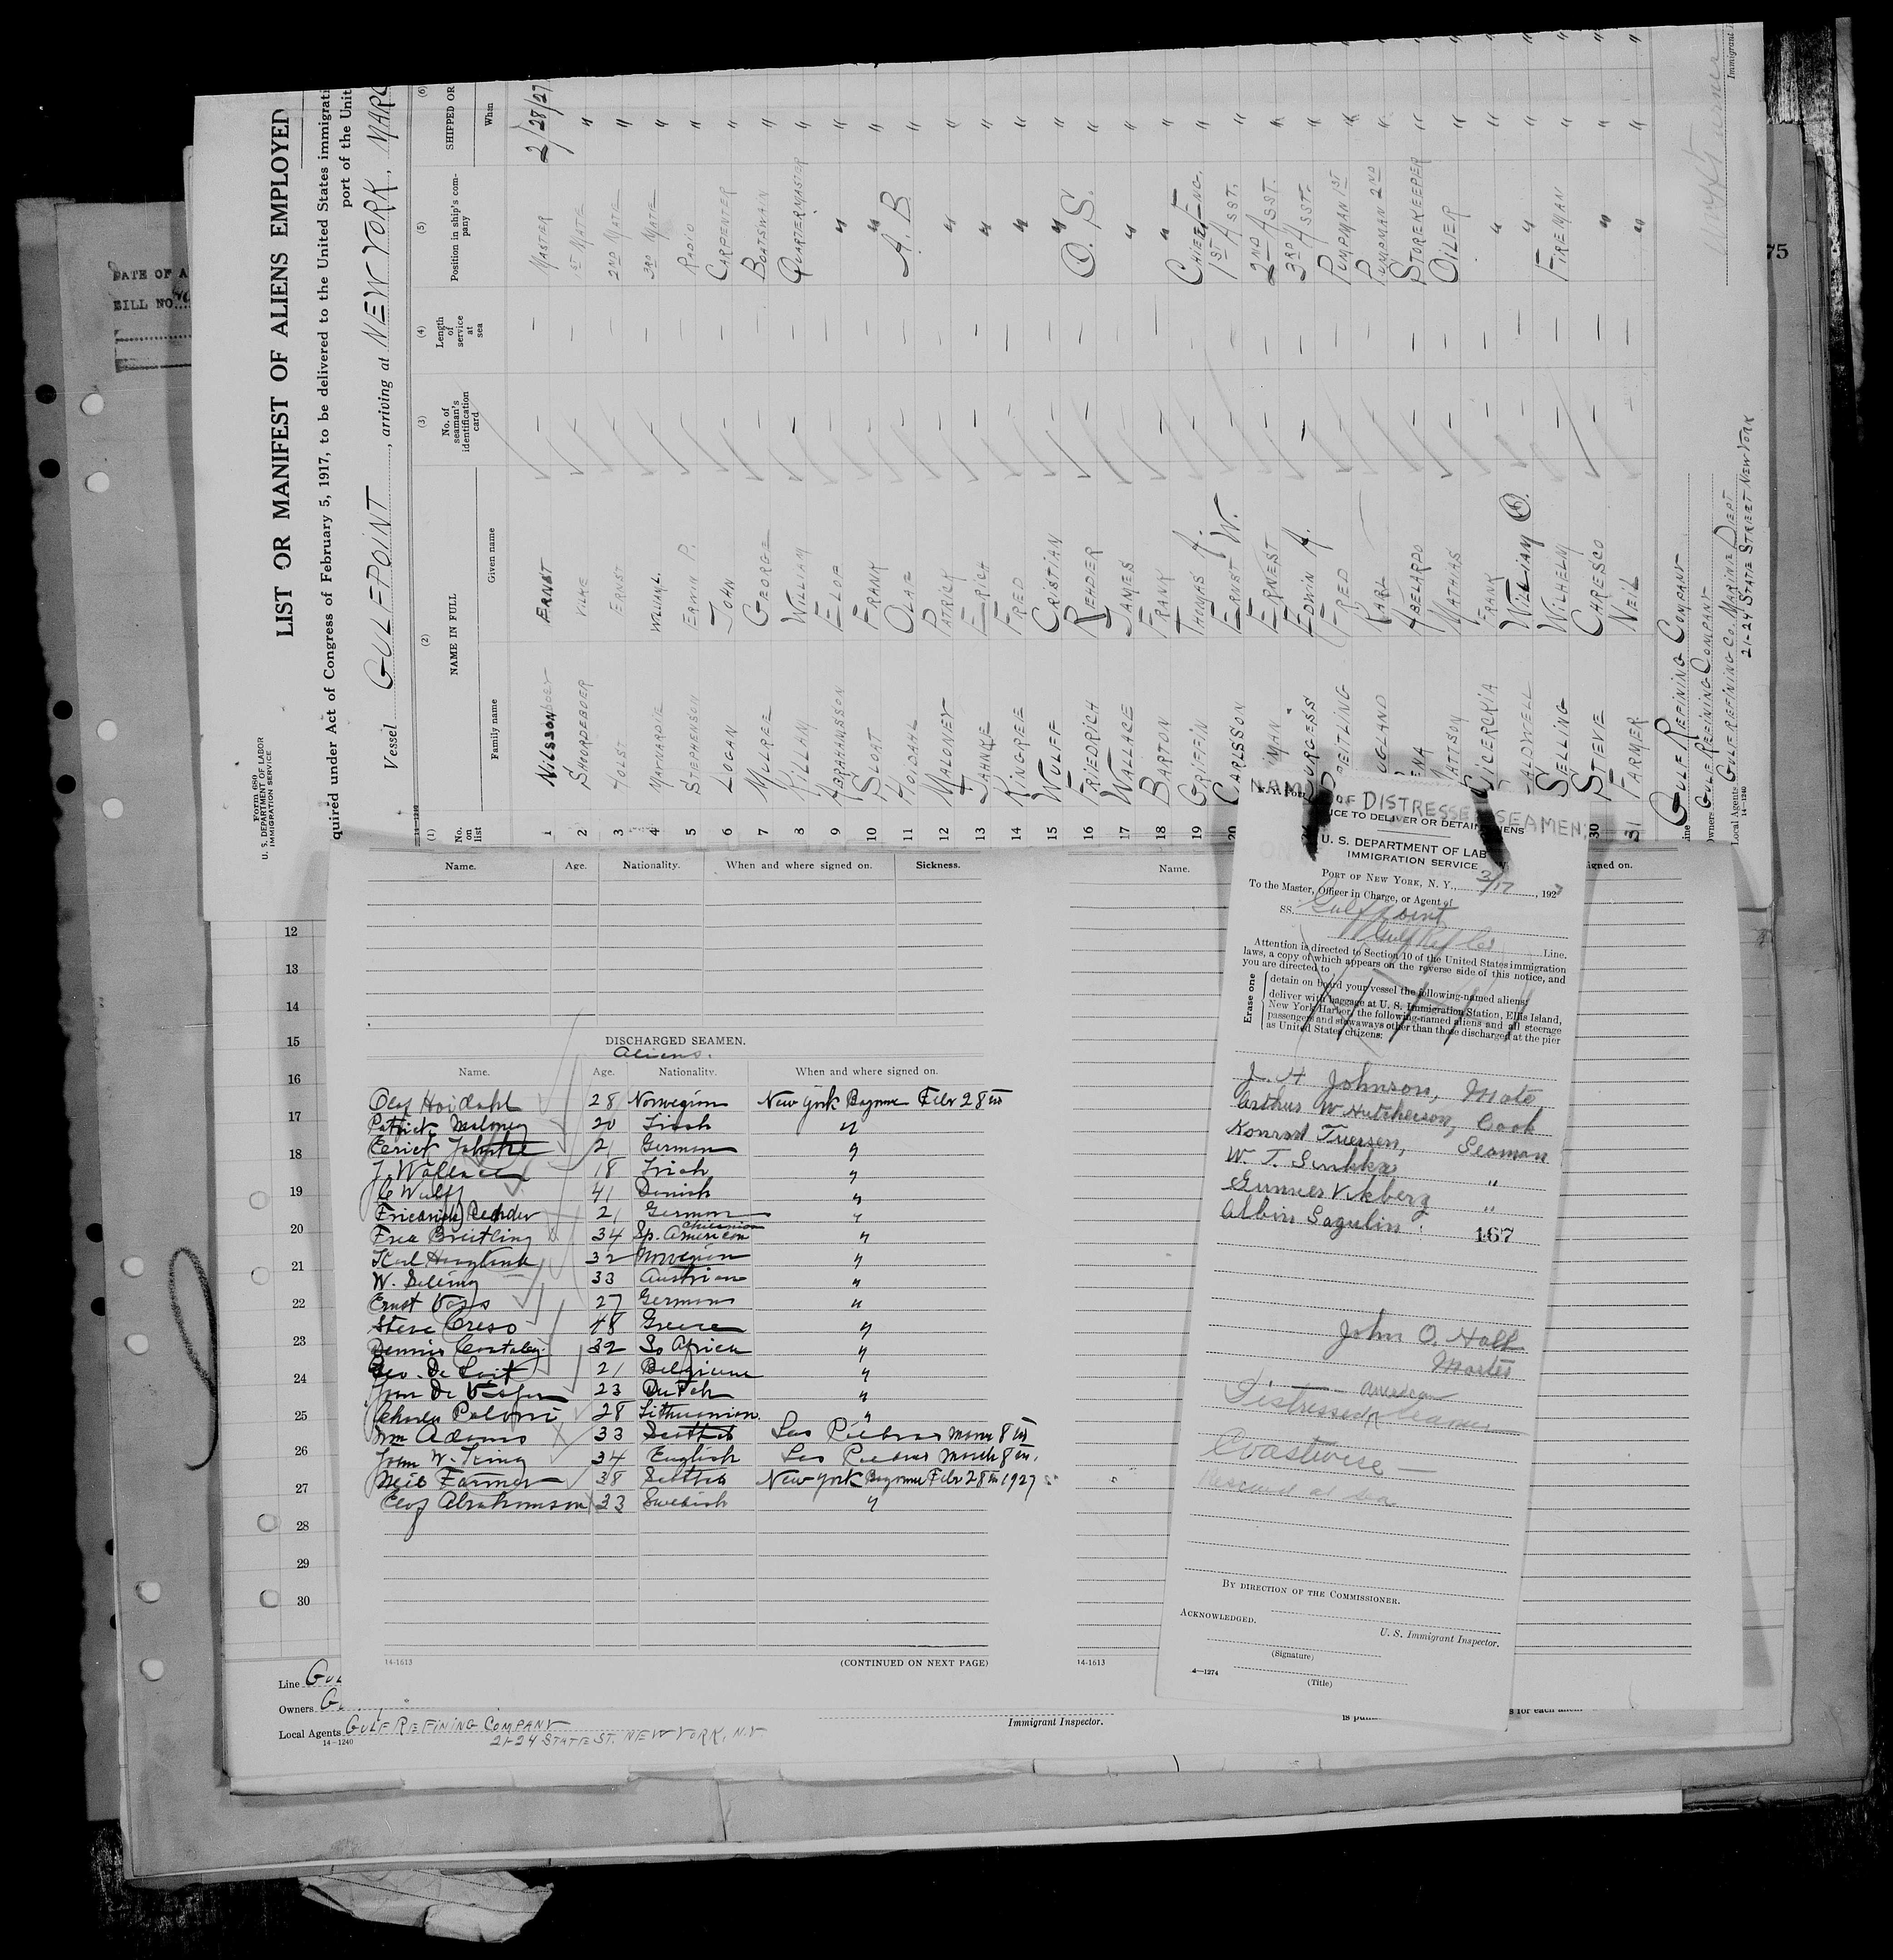 DATE OF A
BILL NO.
75
Form 680
U. S. DEPARTMENT OF LABOR
IMMIGRATION SERVICE
LIST OR MANIFEST OF ALIENS EMPLOYED
quired under Act of Congress of February 5, 1917, to be delivered to the United States immigrati
port of the Unit
Vessel GULFPOINT, arriving at NEW YORK, MARC
14—1240
(1) (2) (3) (4) (5) (6)
No. on list NAME IN FULL No. of seaman's identification card Length of service at sea Position in ship's company SHIPPED OR
Family name Given name When
1 NILSSON ERNST — — MASTER 2/28/27
2 SHOORDEBOER — — 1ST MATE "
3 HOLST ERNST — — 2ND MATE "
4 WILLIAM — — 3RD MATE "
5 STEPHENSON ERWIN P. — — RADIO "
6 LOGAN JOHN — — CARPENTER "
7 MULREE GEORGE — — BOATSWAIN "
8 KILLAM WILLIAM — — QUARTERMASTER "
9 ABRAHAMSSON ELOF — — " "
10 SLOAT FRANK — — " "
11 HOIDAHL OLAF — — A.B "
12 MALONEY PATRICK — — " "
13 JAHNKE ERICH — — " "
14 KINGREE FRED — — " "
15 WULFF CRISTIAN — — " "
16 FRIEDRICH REHDER — — O.S. "
17 WALLACE JAMES — — " "
18 BARTON FRANK — — " "
19 GRIFFIN THOMAS A. — — CHIEF ENG. "
20 CARLSSON ERNST W. — — 1ST ASST. "
MAN ERNEST — — 2ND ASST. "
URGESS EDWIN A. — — 3RD ASST. "
REITLING FRED — — PUMPMAN 1ST "
OUGLAND KARL — — PUMPMAN 2ND "
ENA ABELARDO — — STOREKEEPER "
MATTSON MATHIAS — — OILER "
CICERCKIA FRANK — — " "
ALDWELL WILLIAM O. — — " "
SELLING WILHELM — — FIREMAN "
30 STEVE CARESCO — — " "
31 FARMER NEIL — — " "
Line GULF REFINING COMPANY
Owners GULF REFINING COMPANY
Local Agents GULF REFINING CO. MARINE DEPT
21-24 STATE STREET NEW YORK
14—1240
Immigrant I
Name. Age. Nationality. When and where signed on. Sickness.
DISCHARGED SEAMEN.
Aliens.
Name. Age. Nationality. When and where signed on.
Olaf Hoidahl 28 Norwegian New York Bayonne Febr 28th
Patrick Maloney 20 Irish "
Eerick Jahnke 21 German "
J. Wallace 18 Irish "
C Wulff 41 Danish "
Friedrich Rehder 21 German "
Fred Breitling 34 Sp. American "
Karl Hougland 32 Norwegian "
W. Selling 33 Austrian "
Ernst Voss 27 German "
Steve Creso 48 Greece "
Dennis 32 So Africa "
Geo. De 21 Belgium "
John De 23 Dutch "
Charles Poloni 28 Lithuanian "
Wm Adams 33 Las Piedras March 8th
John W. King 34 English Las Piedras March 8th.
Neil Farmer 38 New York Bayonne Febr 28th 1927
Elof Abrahamson 33 Swedish "
14-1613 (CONTINUED ON NEXT PAGE)
Name.
igned on.
14-1613
NAMES OF DISTRESSED SEAMEN
ICE TO DELIVER OR DETAIN ALIENS
U. S. DEPARTMENT OF LABOR
IMMIGRATION SERVICE
PORT OF NEW YORK, N. Y., 3/17, 1927
To the Master, Officer in Charge, or Agent of
SS. Gulfpoint
Gulf Ref Co Line.
Attention is directed to Section 10 of the United States immigration
laws, a copy of which appears on the reverse side of this notice, and
you are directed to
Erase one
detain on board your vessel the following-named aliens:
deliver with baggage at U. S. Immigration Station, Ellis Island,
New York Harbor, the following-named aliens and all steerage
passengers and stowaways other than those discharged at the pier
as United States citizens:
J. H Johnson, Mate
Arthur W Hutcherson, Cook
Konrad Tuersen, Seaman
W. T. "
Gunner Vikberg "
Albin Sagulin
167
John O. Hall
Master
American
Distressed Seamen
Coastwise —
Rescued at sea
BY DIRECTION OF THE COMMISSIONER.
ACKNOWLEDGED.
U. S. Immigrant Inspector.
(Signature)
4—1274
(Title)
12
13
14
15
16
17
18
19
20
21
22
23
24
25
26
27
28
29
30
Line GUL
Owners G
Local Agents GULF REFINING COMPANY
21-24 STATE ST. NEW YORK, N.Y.
14—1240
Immigrant Inspector.
s for each alien